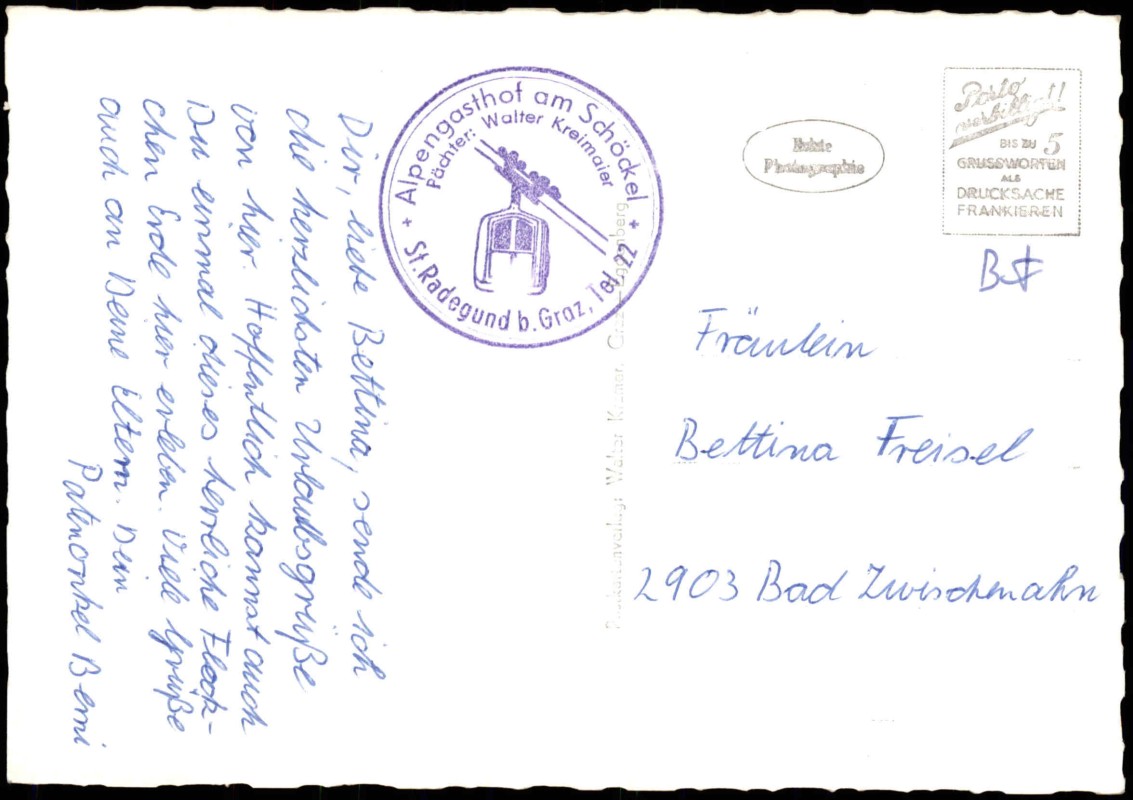 Dir, liebe Bettina, sende ich
die herzlichsten Urlaubsgrüße
von hier. Hoffentlich kannst auch
Du einmal dieses herrliche Fleck-
chen Erde hier erleben. Viele Grüße
auch an Deine Eltern. Dein
Patenonkel Berni
+ Alpengasthof am Schöckel +
Pächter: Walter Kreimaier
St. Radegund b. Graz, Tel. 22
Walter Kramer, Graz
Echte
Photographie
Porto
verbilligt!
BIS ZU 5
GRUSSWORTEN
ALS
DRUCKSACHE
FRANKIEREN
Fräulein
Bettina Freisel
2903 Bad Zwischenahn